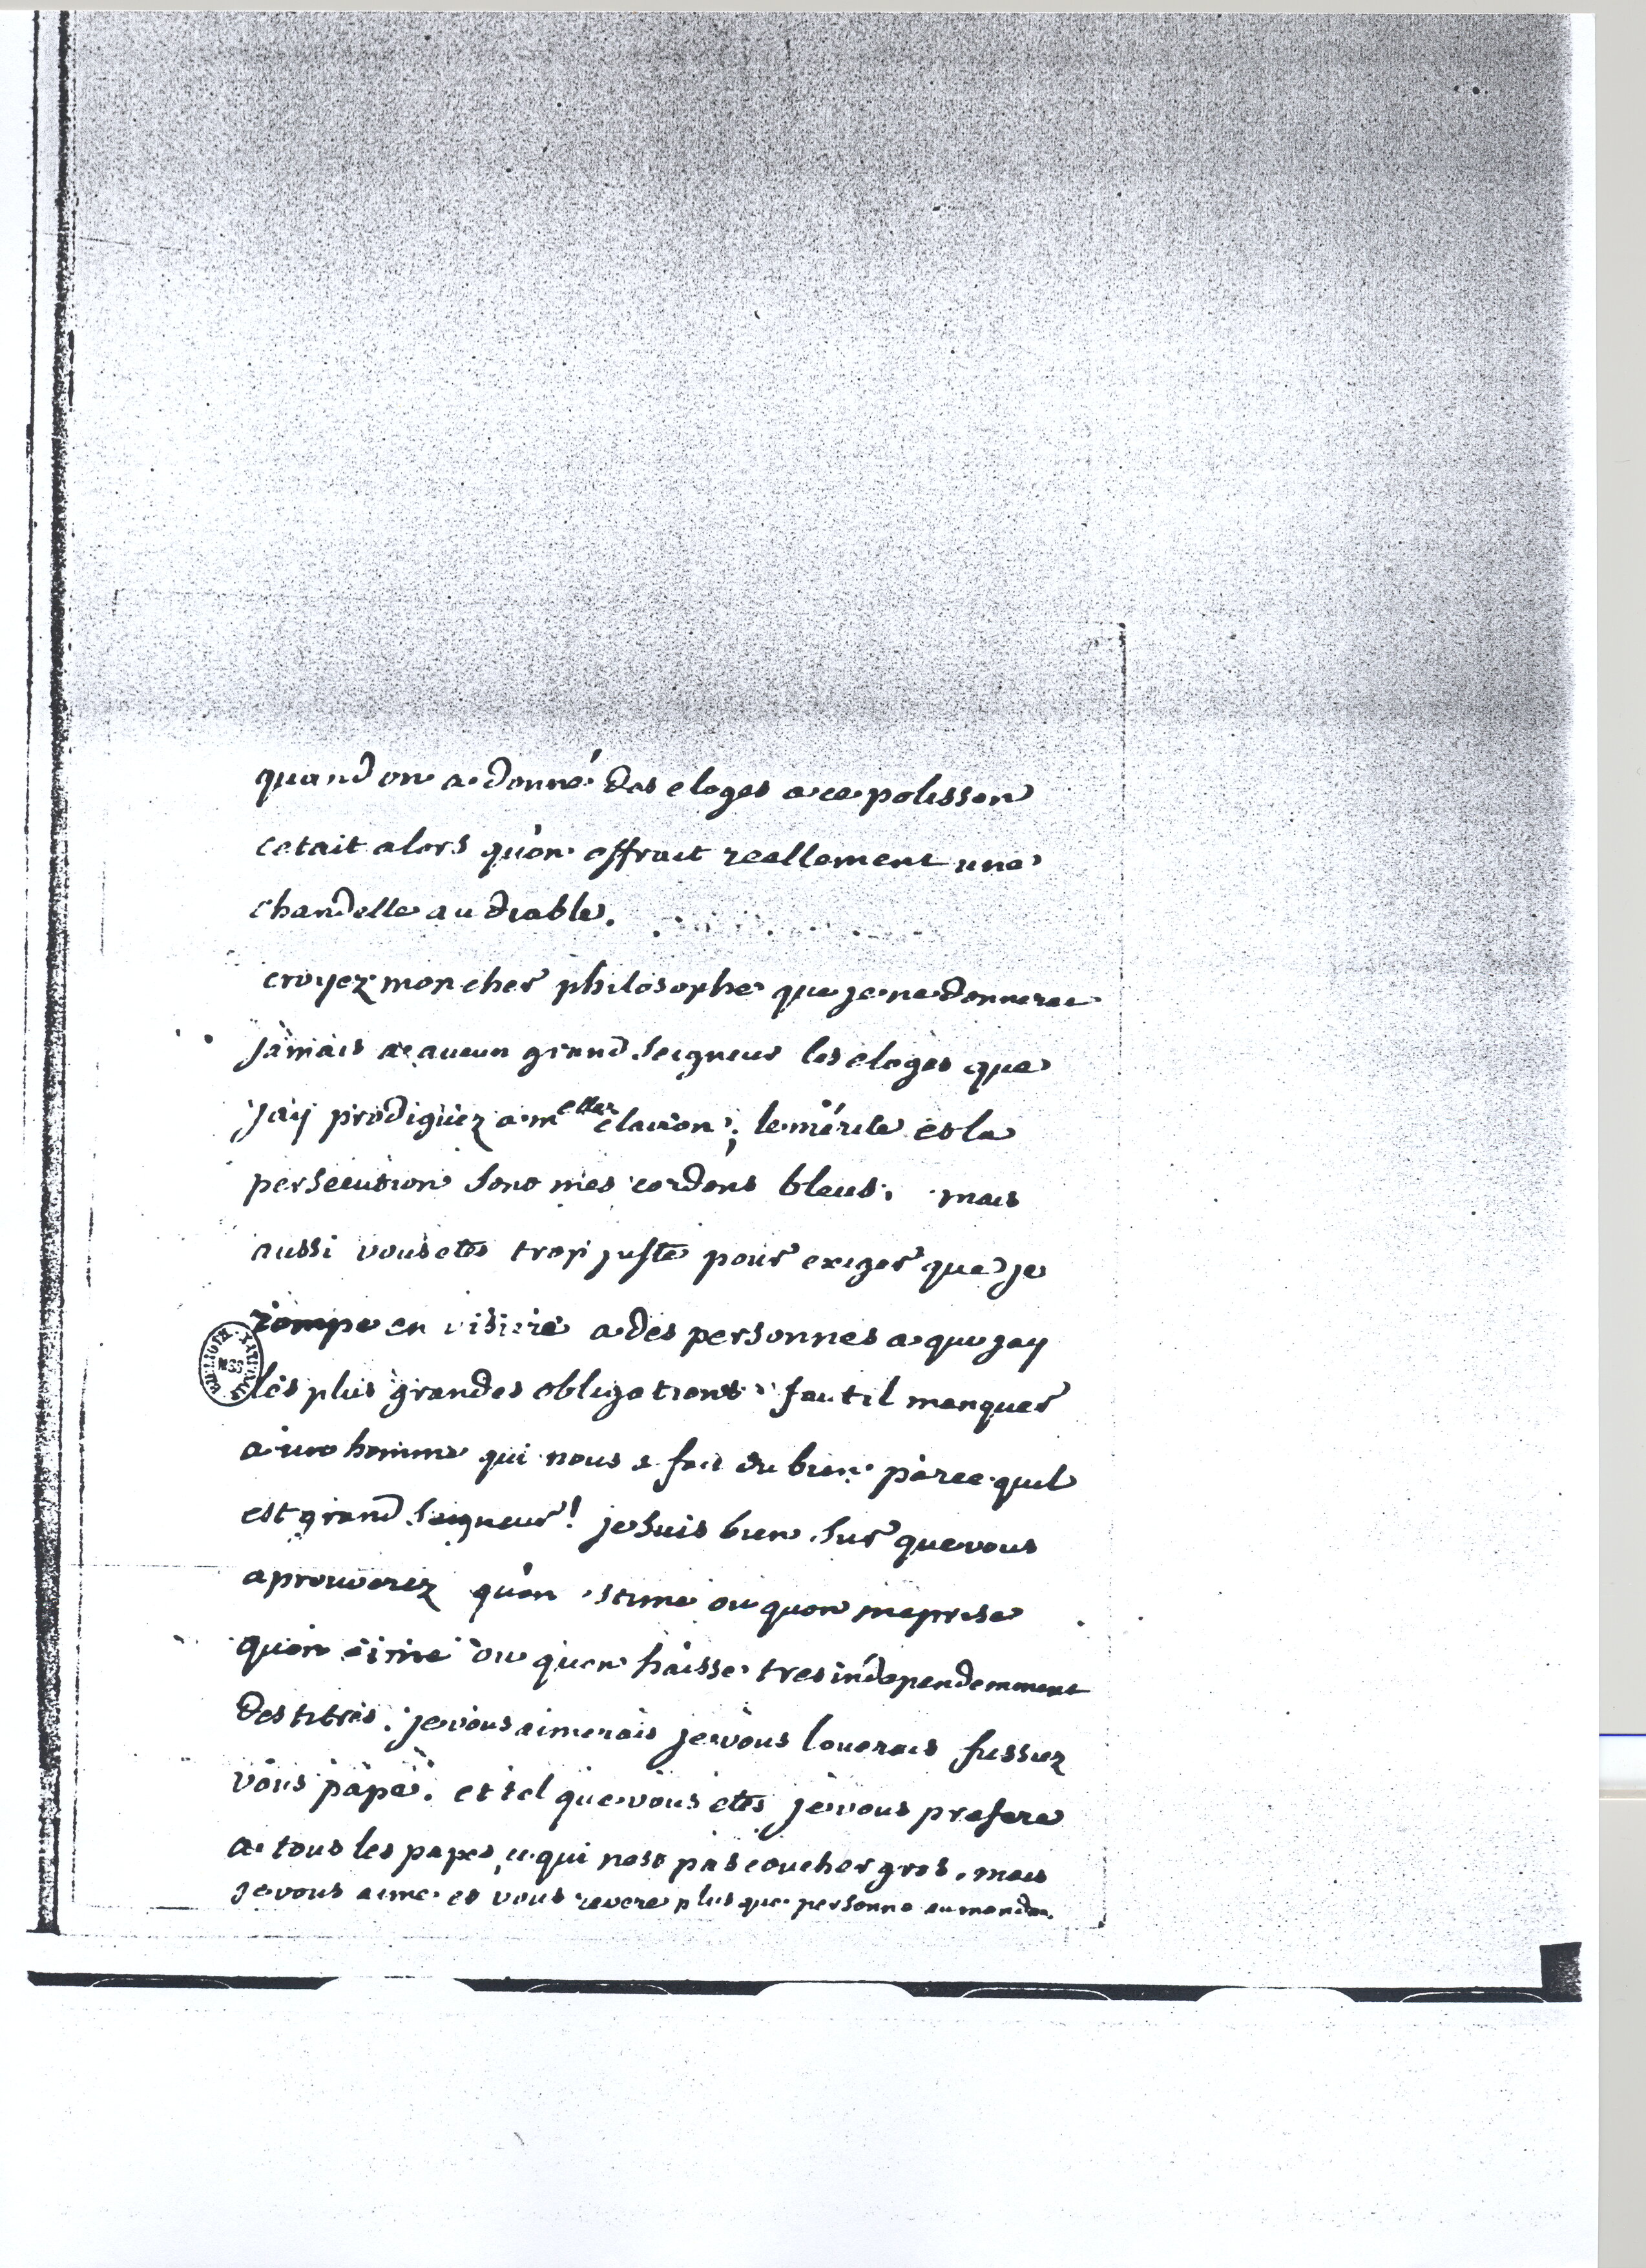 quand on a donné des eloges a ce polisson
cetait alors qu'on offrait reellement une
chandelle au diable.
croyez mon cher philosophe que je ne donnerai
jamais a aucun grand seigneur les eloges que
jay prodiguez a m elle clairon; le mérite et la
persecution sont mes cordons bleus. mais
aussi vous etes trop juste pour exiger que je
rompe en visiere a des personnes a qui jay
les plus grandes obligations. faut il manquer
a un homme qui nous a fait du bien parce quil
est grand seigneur! je suis bien sur que vous
aprouverez qu'on estime ou quon meprise
quon aime ou quon haisse tres independemment
des titres. je vous aimerais je vous louerais fussiez
vous pape. et tel que vous etes je vous prefere
a tous les papes, ce qui nest pas coucher gros. mais
je vous aime et vous revere plus que personne au monde.
BIBLIOTH. NATIONALE
MSS